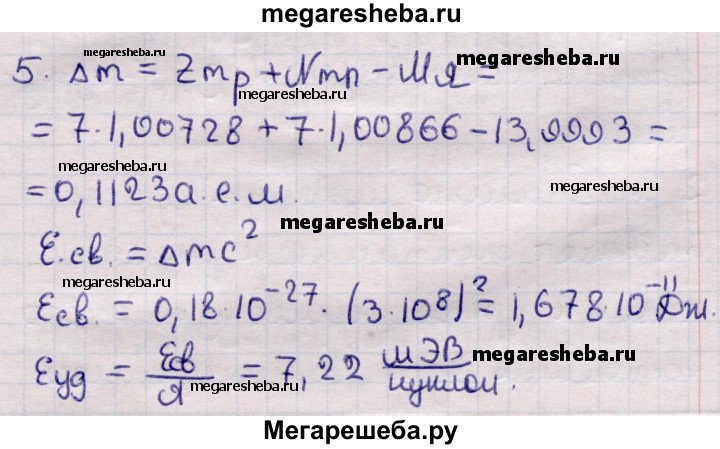 megaresheba.ru
megaresheba.ru
5. Δm = Zmp + Nmn - Mя =
megaresheba.ru
megaresheba.ru
= 7·1,00728 + 7·1,00866 - 13,9993 =
megaresheba.ru
megaresheba.ru
= 0,1123 а.е.м.
megaresheba.ru
Е.св. = Δmc²
megaresheba.ru
Есв. = 0,18·10⁻²⁷·(3·10⁸)² = 1,678·10⁻¹¹ Дж.
Еуд = Есв/Я = 7,22 мЭВ/нуклон.
megaresheba.ru
megaresheba.ru
Мегарешеба.ру